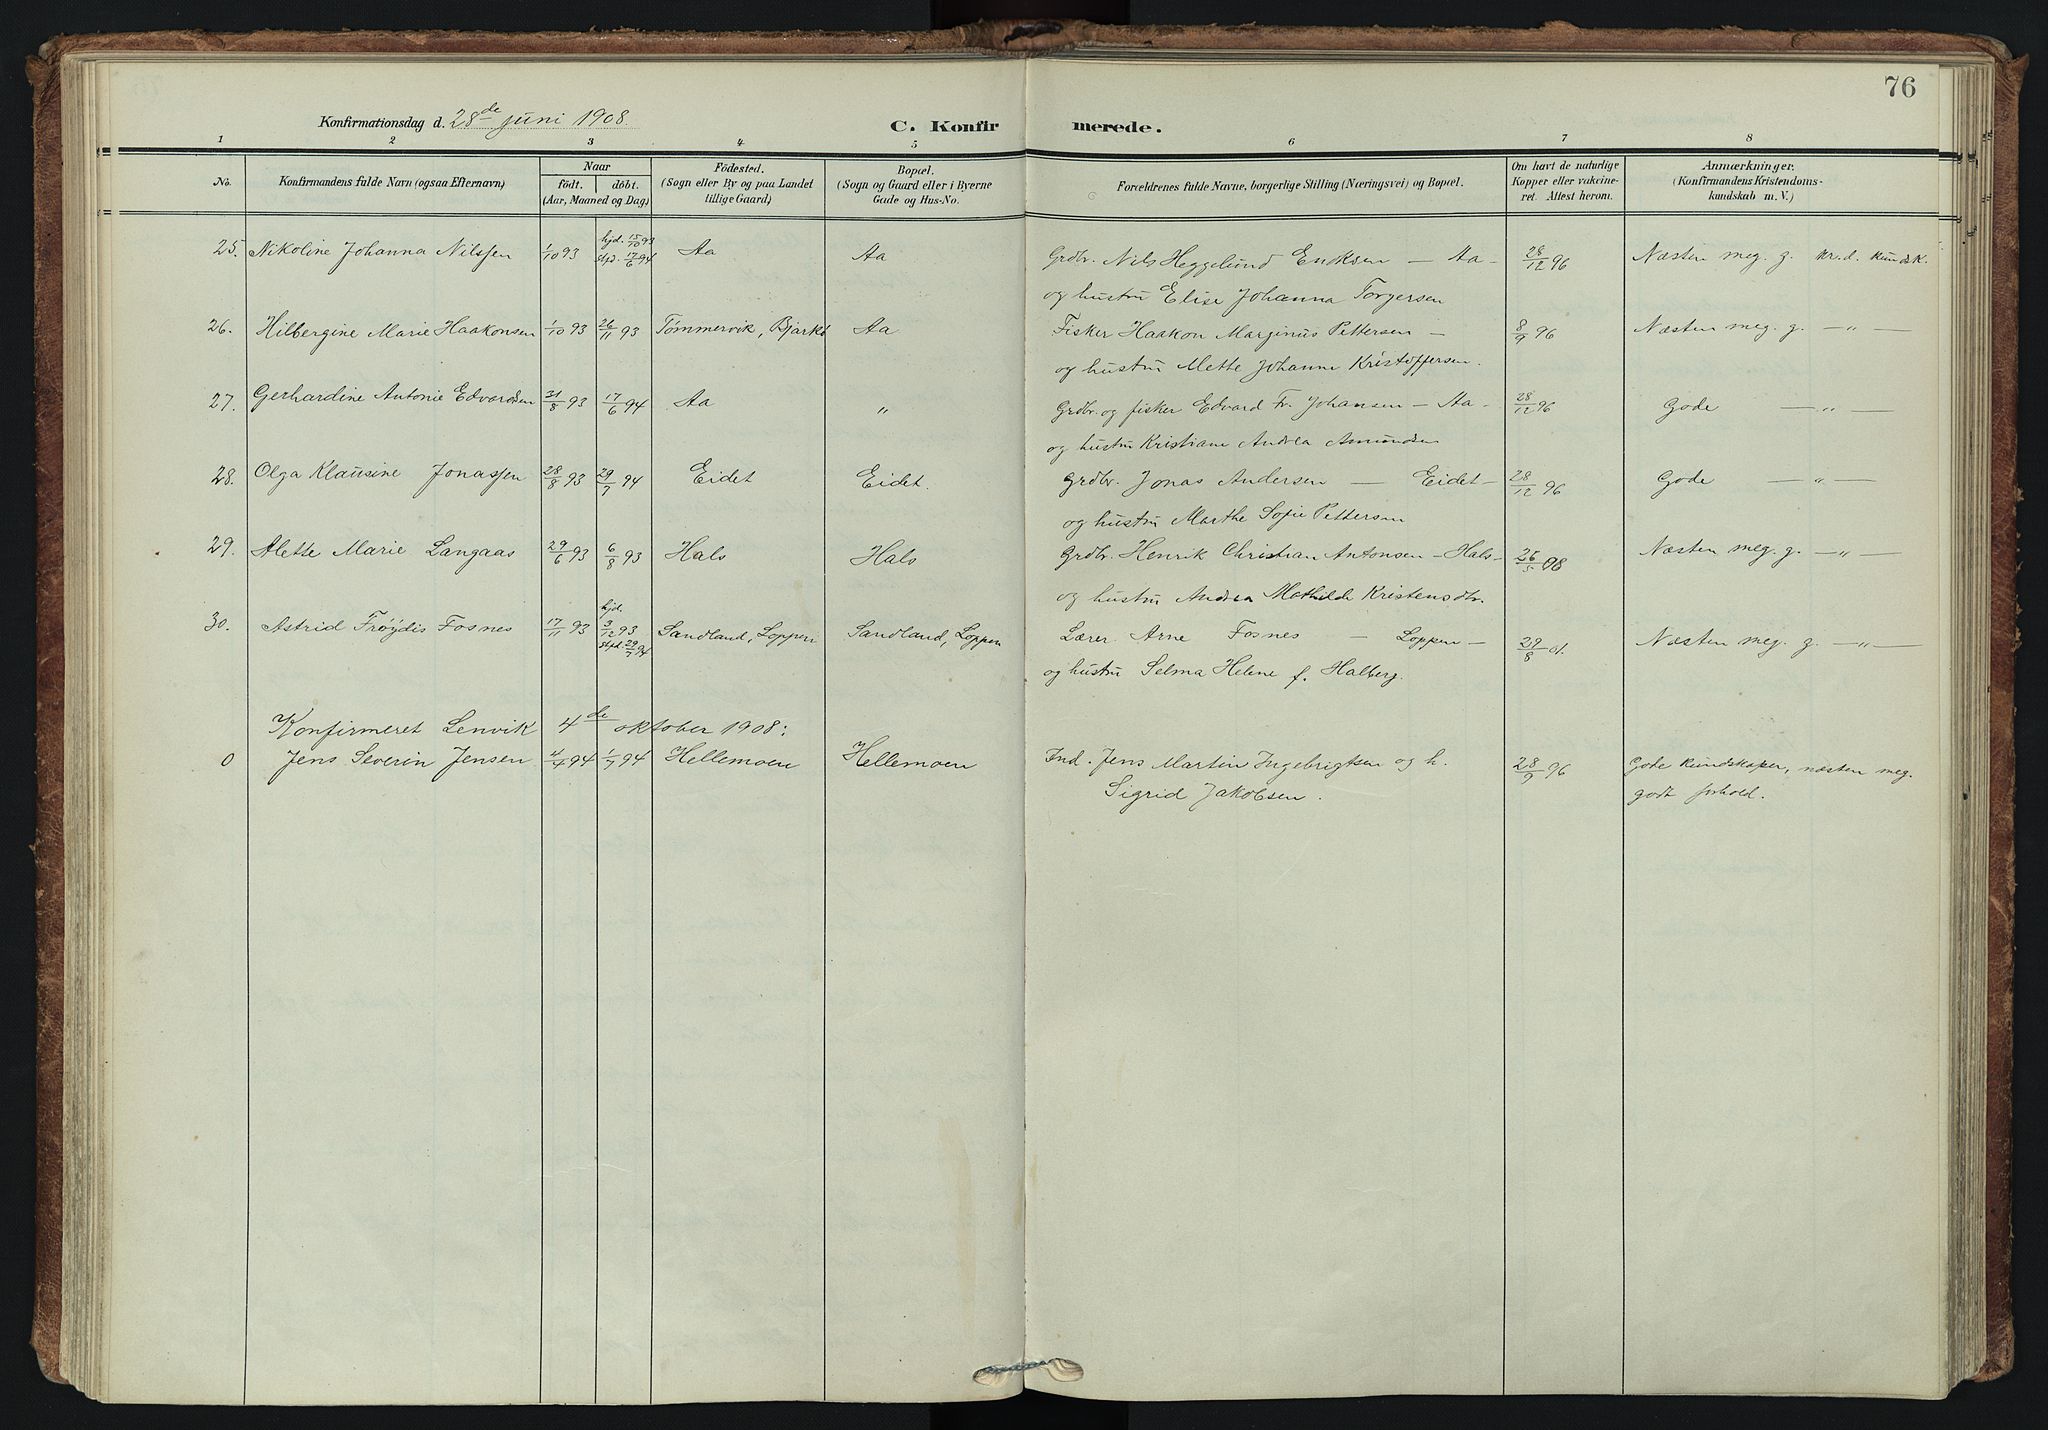 76
Konfirmationsdag d. 28de juni 1908
C. Konfirmerede.
1 2 3 4 5 6 7 8
No. Konfirmandens fulde Navn (ogsaa Efternavn) Naar født. døbt. (Aar, Maaned og Dag) Födested. (Sogn eller By og paa Landet tillige Gaard) Bopæl. (Sogn og Gaard eller i Byerne Gade og Hus-No. Forældrenes fulde Navne, borgerlige Stilling (Næringsvei) og Bopæl. Om havt de naturlige Kopper eller vakcineret. Attest herom. Anmærkninger. (Konfirmandens Kristendomskundskab m. V.)
25. Nikoline Johanna Nilssen 1/10 93 hjd. 15/10 93 stfd. 17/6 94 Aa Aa Grdbr. Nils Heggelund Eriksen — Aa — 28/12 96 Næsten meg. g. kr.d. kundsk.
og hustru Elise Johanna Torgersen
26. Hilbergine Marie Haakonsen 1/10 93 26/11 93 Tømmervik, Bjarkö Aa Fisker Haakon Marginus Pettersen — 8/9 96 Næsten meg. g. — " —
og hustru Mette Johanne Kristoffersen.
27. Gerhardine Antonie Edvardsen 31/8 93 17/6 94 Aa " Grdbr. og fisker Edvard Fr. Johansen — Aa — 28/12 96 Gode — " —
og hustru Kristiane Andrea Amundsen
28. Olga Klausine Jonassen 28/8 93 29/7 94 Eidet Eidet. Grdbr. Jonas Andersen — Eidet — 28/12 96 Gode — " —
og hustru Marthe Sofie Pettersen
29. Mette Marie Langaas 29/6 93 6/8 93 Hals Hals Grdbr. Henrik Christian Antonsen — Hals — 26/5 98 Næsten meg. g. — " —
og hustru Andrea Mathilde Kristensdtr.
30. Astrid Frøydis Fosnes 17/11 93 hjd. 3/12 93 stfd. 29/7 94 Sandland, Loppen Sandland, Loppen Lærer Arne Fosnes — Loppen — 29/8 01. Næsten meg. g. — " —
og hustru Selma Helene f. Halberg.
Konfirmeret Lenvik 4de oktober 1908:
0 Jens Severin Jensen 4/4 94 1/7 94 Hellemoen Hellemoen Ind. Jens Martin Ingebrigtsen og h. 28/9 96 Gode kundskaper, næsten meg.
Sigrid Jakobsen. godt forhold.